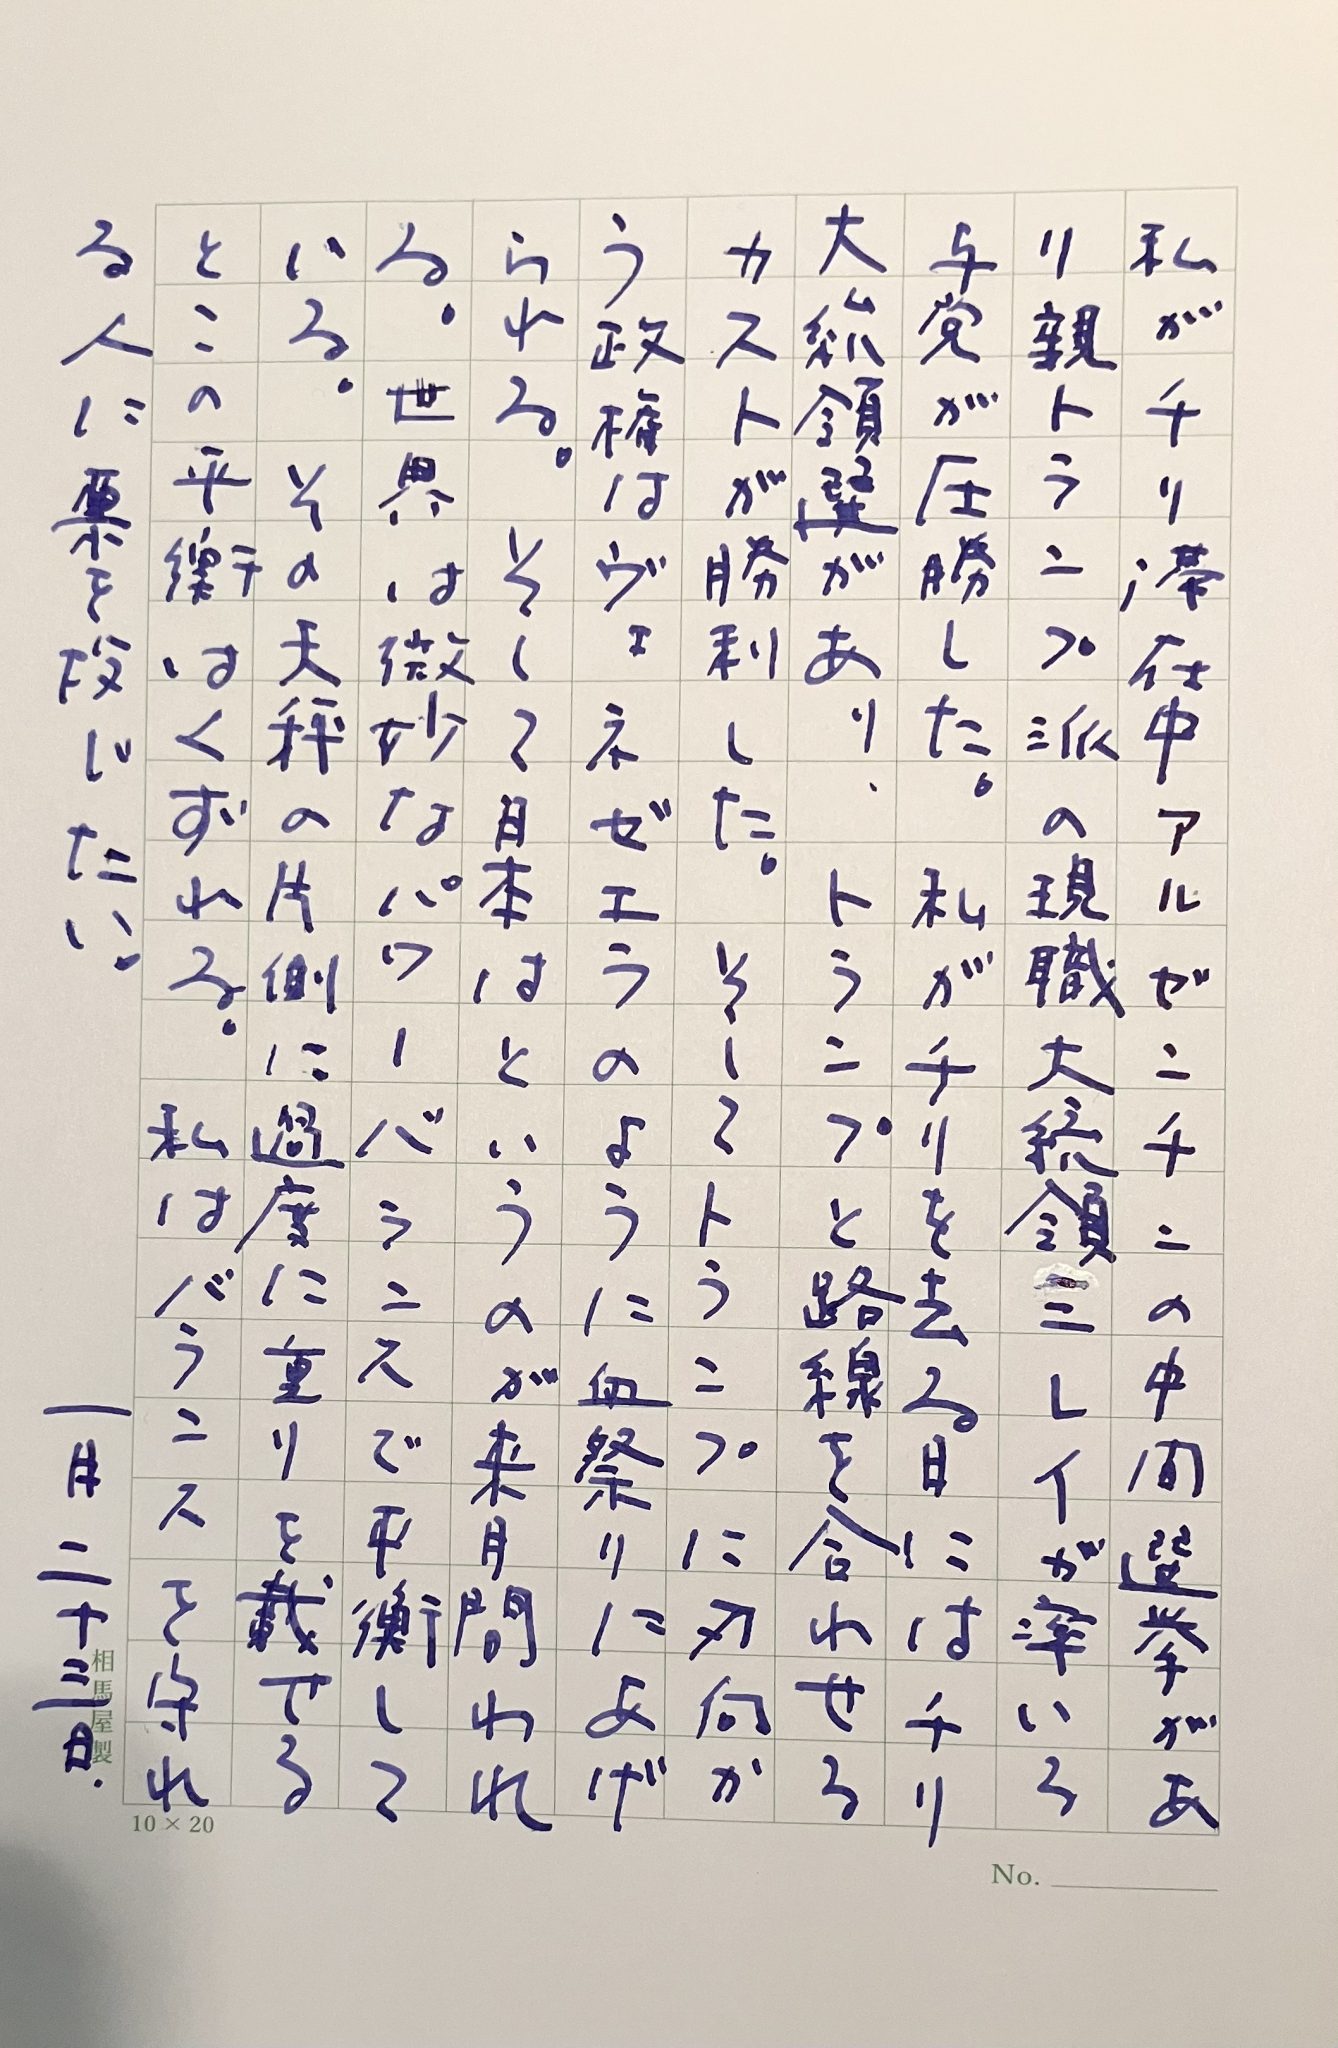 私がチリ滞在中アルゼンチンの中間選挙があ
り親トランプ派の現職大統領ミレイが率いる
与党が圧勝した。私がチリを去る日にはチリ
大統領選があり、トランプと路線を合わせる
カストが勝利した。そしてトランプに刃向か
う政権はヴェネゼエラのように血祭りにあげ
られる。そして日本はというのが来月問われ
る。世界は微妙なパワーバランスで平衡して
いる。その天秤の片側に過度に重りを載せる
とこの平衡はくずれる。私はバランスを守れ
る人に票を投じたい。
一月二十三日.
相馬屋製
10×20
No.